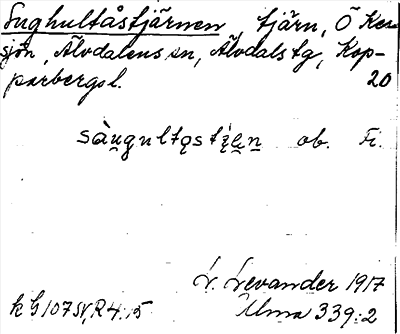 Sughultåstjärnen, tjärn, Ö Ker-
sjön, Älvdalens sn, Älvdals tg, Kop-
parbergs l. 20
sàugultǫstįęn ob. Fi.
L. Levander 1917
k G 107 SV, R 4:15 Ulma 339:2